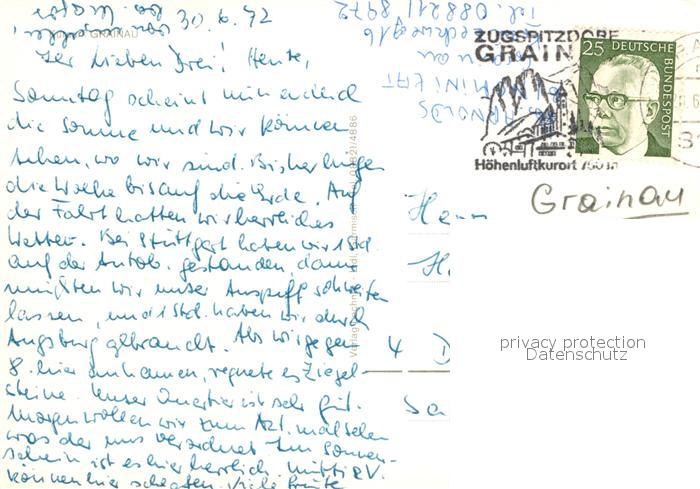 30.6.72
GRAINAU
Ihr Lieben Drei! Heute,
Sonntag scheint nun endlich
die Sonne und wir können
sehen, wo wir sind. Bisher hingen
die Wolke bis auf die Erde. Auf
der Fahrt hatten wir herrliches
Wetter. Bei Stuttgart haben wir 1 Std.
auf der Autob. gestanden, dann
mußten wir unser Auspuff schweißen
lassen, und 1 Std. haben wir durch
Augsburg gebraucht. Als wir gegen
8. hier ankamen, regnete es Ziegel-
steine. Unser Quartier ist sehr gut.
Morgen wollen wir zum Arzt. mal sehen
was der uns verordnet. Im Sonnen-
schein ist es hier herrlich.
können hier schlafen. Viele Grüße
Tel. 08821/8972
ARNOLDS
08821/4886
ZUGSPITZDORF
GRAIN
Höhenluftkurort 750 m
25 DEUTSCHE
BUNDESPOST
Grainau
Herrn
4 D
privacy protection
Datenschutz